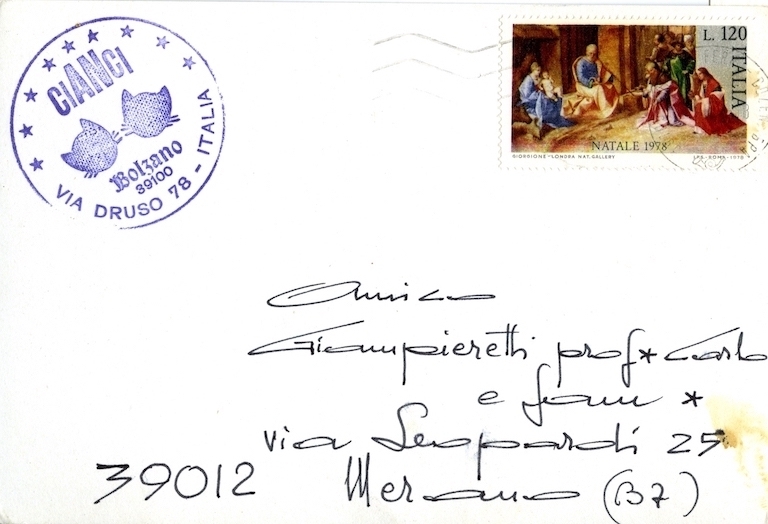 CiANCi
Bolzano
39100
VIA DRUSO 78 - ITALIA
L. 120
ITALIA
NATALE 1978
GIORGIONE - LONDRA NAT. GALLERY
I.P.S. - ROMA - 1978
Amico
Giampieretti prof* Carlo
e fam *
via Leopardi 25
39012 Merano (BZ)